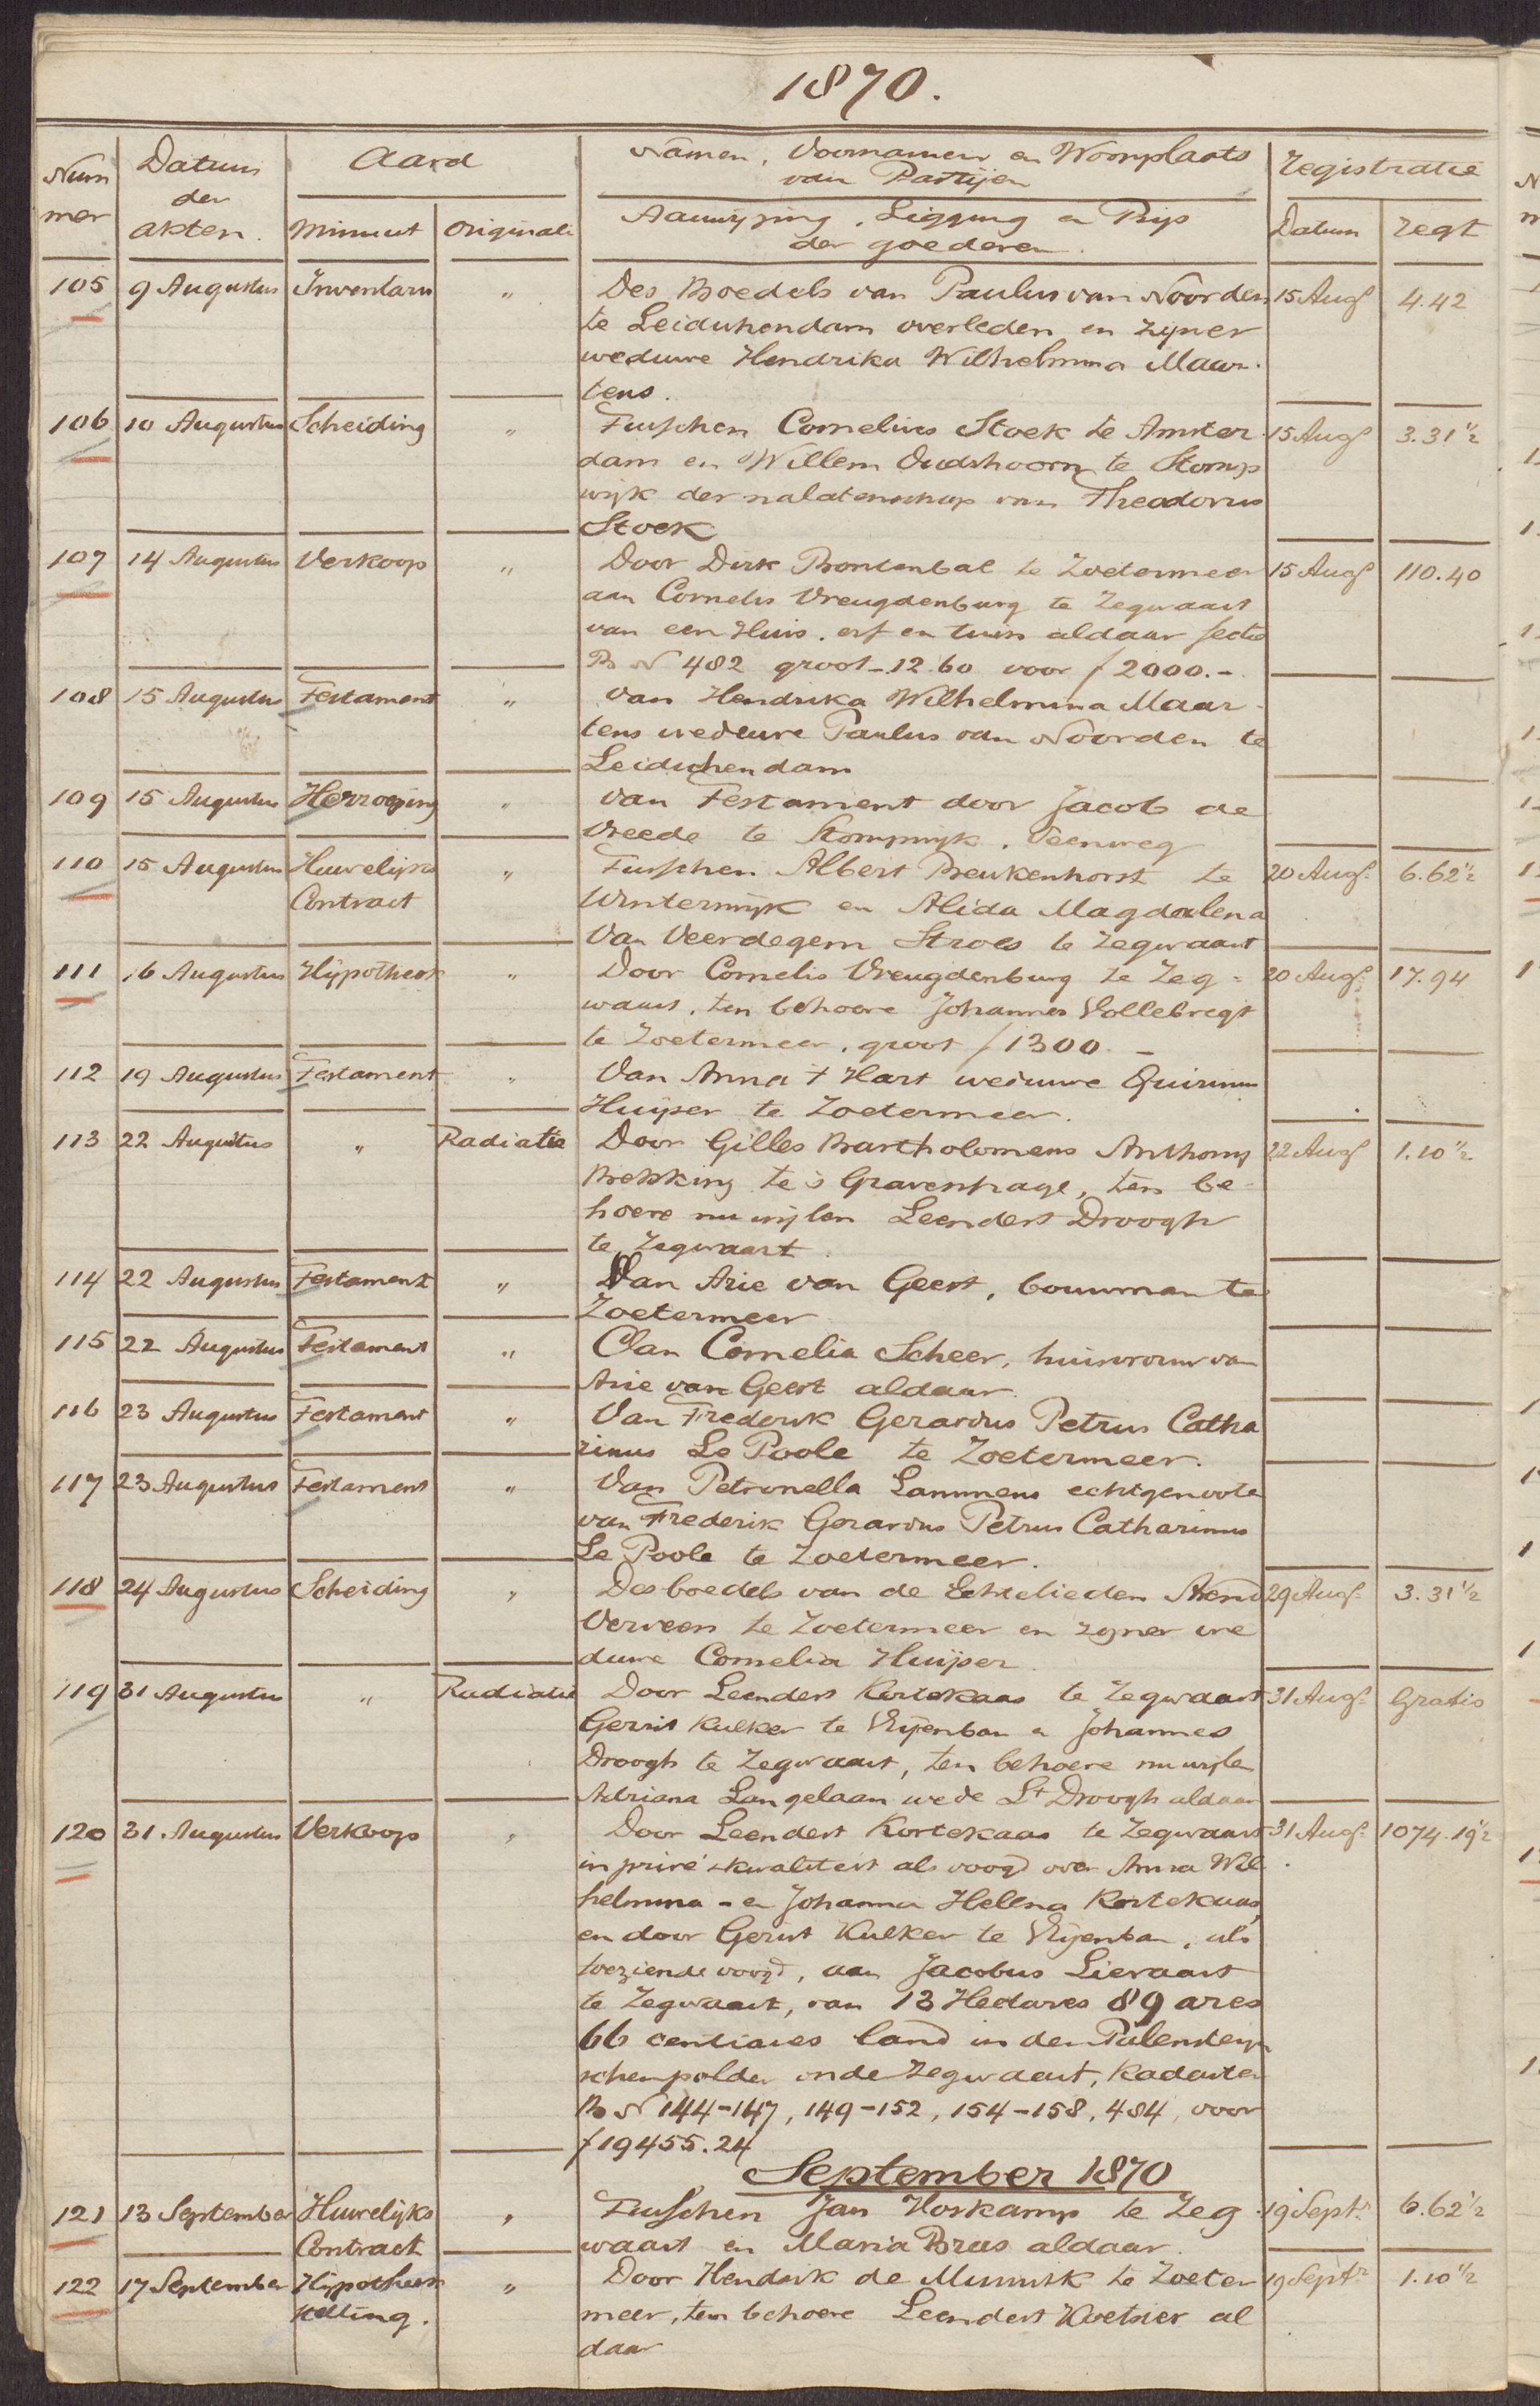 1870.
Num
mer
Datum
der
akten.
Aard
Minuut
Originali
Namen, Voornamen en Woonplaats
van Partijen
Aanwijzing, Ligging en Prijs
der goederen.
Registratie
Datum
regt
105 9 Augustus Inventaris " Des Boedels van Paulus van Noorden 15 Augs 4.42
te Leidschendam overleden en zijner
weduwe Hendrika Wilhelmina Maar-
tens.
106 10 Augustus Scheiding " Tusschen Cornelius Stoek te Amster- 15 Augs 3.31½
dam en Willem Oudshoorn te Stomp
wijk der nalatenschap van Theodorus
Stoek
107 14 Augustus Verkoop " Door Dirk Bontenbal te Zoetermeer 15 Augs 110.40
aan Cornelis Vreugdenburg te Zegwaart
van een Huis, erf en tuin aldaar sectie
B N 482 groot -.12.60 voor f 2000.-
108 15 Augustus Testament " Van Hendrika Wilhelmina Maar-
tens weduwe Paulus van Noorden te
Leidschendam
109 15 Augustus Herroeping " van Testament door Jacob de
Vreede te Stompwijk, Veenweg
110 15 Augustus Huwelijks " Tusschen Albert Breukenhorst te 20 Augs 6.62½
Contract Winterswijk en Alida Magdalena
Van Veerdegem Stroes te Zegwaart
111 16 Augustus Hypotheek " Door Cornelis Vreugdenburg te Zeg- 20 Augs 17.94
waart, ten behoeve Johannes Vollebregt
te Zoetermeer, groot f 1300.-
112 19 Augustus Testament " Van Anna t Hart weduwe Quirinus
Huijser te Zoetermeer.
113 22 Augustus " Radiatie Door Gilles Bartholomeus Anthony 22 Augs 1.10½
Brekking te s Gravenhage, ten be-
hoeve nu wijlen Leendert Droogh
te Zegwaart.
114 22 Augustus Testament " Van Arie van Geest, bouwman te
Zoetermeer
115 22 Augustus Testament " Van Cornelia Scheer, huisvrouw van
Arie van Geest aldaar.
116 23 Augustus Testament " Van Frederik Gerardus Petrus Catha
rinus Le Poole te Zoetermeer.
117 23 Augustus Testament " Van Petronella Lammens echtgenoote
van Frederik Gerardus Petrus Catharinus
Le Poole te Zoetermeer.
118 24 Augustus Scheiding " Des boedels van de Echtelieden Arend 29 Augs 3.31½
Verveen te Zoetermeer en zijner we
duwe Cornelia Huijser.
119 31 Augustus " Radiatie Door Leendert Kortekaas te Zegwaart 31 Augs Gratis
Gerrit Kulker te Vrijenban en Johannes
Droogh te Zegwaart, ten behoeve nu wijlen
Adriana Langelaan wede Lt Droogh aldaar
120 31. Augustus Verkoop " Door Leendert Kortekaas te Zegwaart 31 Augs 1074.19½
in privé kwaliteit als voogd over Anna Wil
helmina - en Johanna Helena Kortekaas,
en door Gerrit Kulker te Vrijenban, als
toeziende voogd, aan Jacobus Lievaart
te Zegwaart, van 13 Hectares 89 ares
66 centiares land in den Palenstein
schenpolder onder Zegwaart, Kadaster
B N 144-147, 149-152, 154-158, 484, voor
f 19455.24
September 1870
121 13 September Huwelijks " Tusschen Jan Horkamp te Zeg- 19 Septr 6.62½
Contract waart en Maria Bras aldaar.
122 17 September Hypotheek " Door Hendrik de Munnik te Zoeter 19 Septr 1.10½
stelling. meer, ten behoeve Leendert Koetsier al
daar